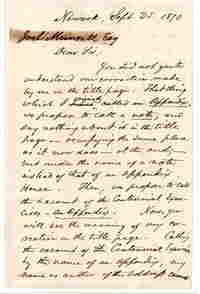 Newark, Sept. 25. 1870
Joel Munsell, Esq
Dear Sir,
You did not quite
understand our correction made
by me in the title page. That thing
which I called an Appendix,
we propose to call a note, and
say nothing about it in the title
page - occupying the same place
as it now does at the end; 
but under the name of a note
instead of that of an Appendix
Hence. Then, we propose to call
the account of the Centennial Exer-
cises - an Appendix. Now, you
will see the meaning of my cor-
rection in the title page. Calling
the account of the Centennial Exercises
by the name of an Appendix, my
name as author of the Address